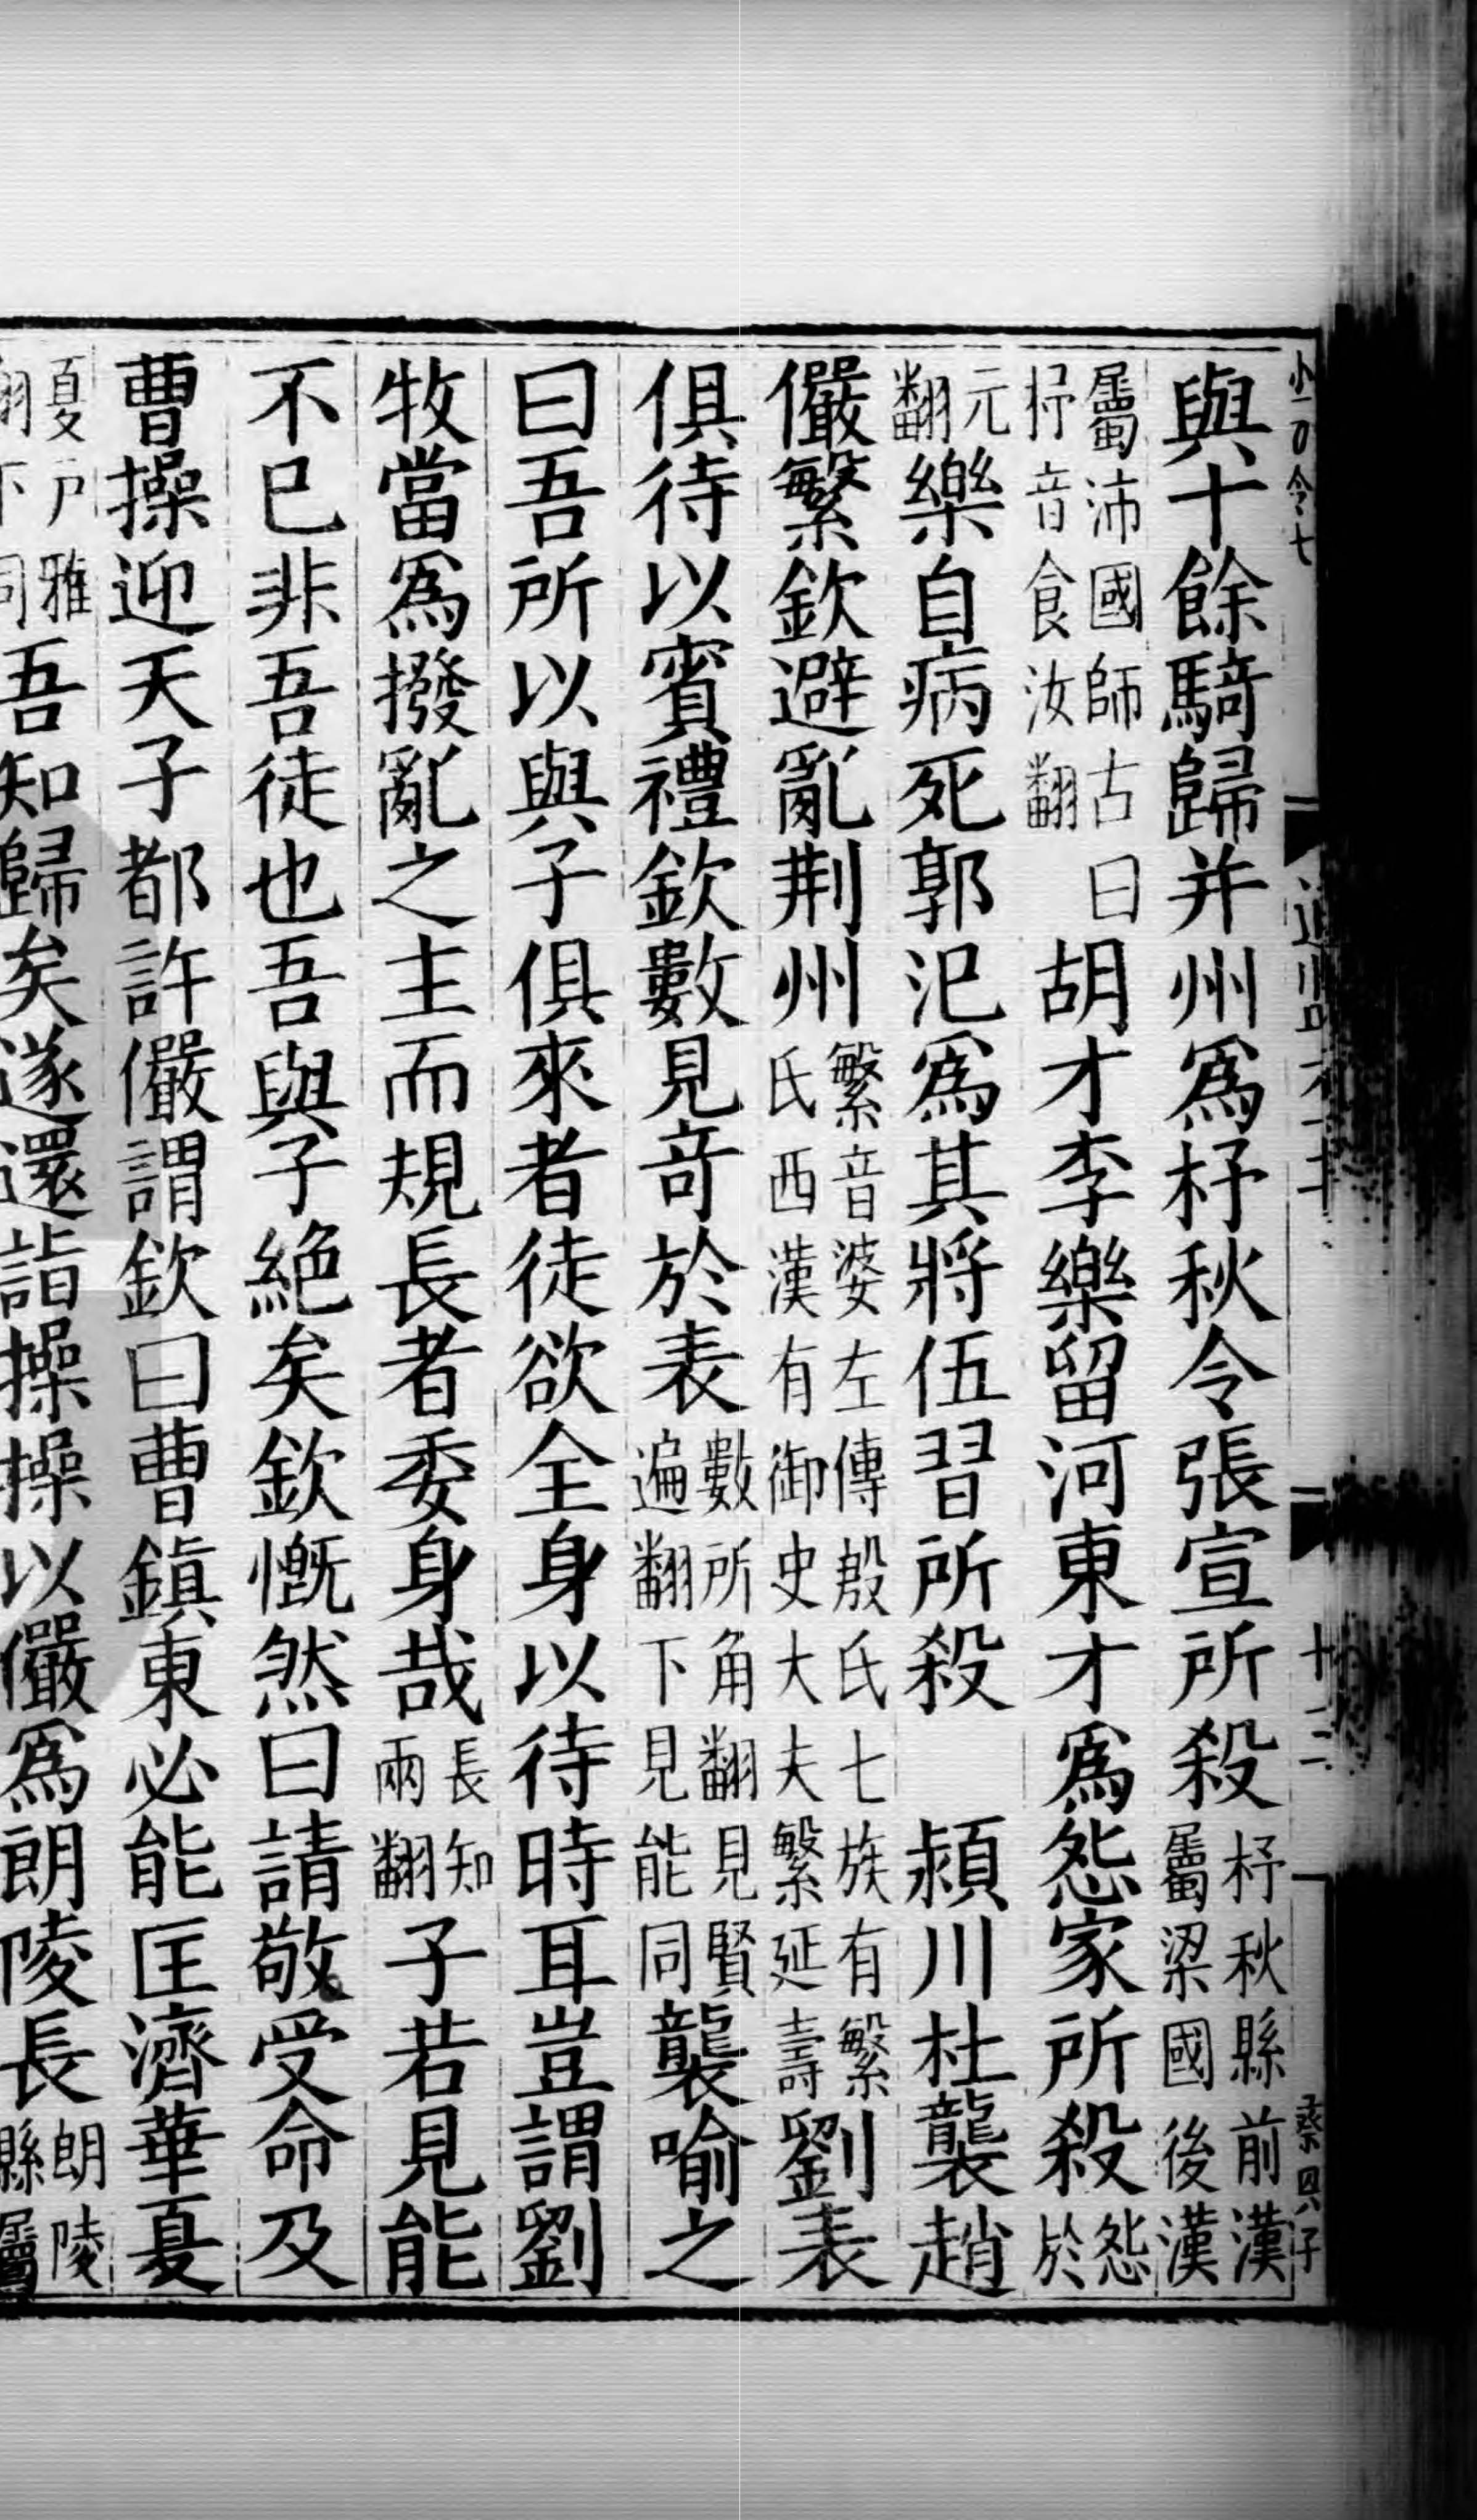 與十餘騎歸并州爲杼秋令張宣所殺杼秋縣前漢屬梁國後漢
屬沛國師古曰杼音食汝翻胡才李樂留河東才爲怨家所殺怨於
元翻樂自病死郭汜爲其將伍習所殺 潁川杜襲趙
儼繁欽避亂荆州繁音婆左傳殷氏七族有繁氏西漢有御史大夫繁延壽劉表
俱待以賓禮欽數見竒於表數所角翻見賢遍翻下見能同襲喻之
曰吾所以與子俱來者徒欲全身以待時耳豈謂劉
牧當爲撥亂之主而規長者委身哉長知兩翻子若見能
不已非吾徒也吾與子絶矣欽慨然曰請敬受命及
曹操迎天子都許儼謂欽曰曹鎮東必能匡濟華夏
夏戶雅翻下同吾知歸矣遂還詣操操以儼爲朗陵長朗陵縣屬